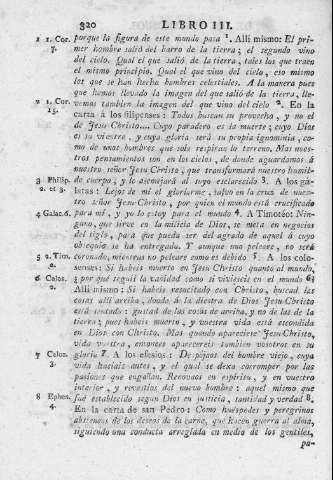 320 LIBRO III.
1 1. Cor. 7.
porque la figura de este mundo pasa 1. Allí mismo: El primer
hombre salió del barro de la tierra; el segundo vino
del cielo. Qual el que salió de la tierra, tales los que traen
el mismo principio. Qual el que salió del cielo, eso mismo
los que se han hecho hombres celestiales. A la manera pues
que hemos llevado la imagen del que salió de la tierra, llevemos
2 1. Cor. 15.
tambien la imagen del que vino del cielo 2. En la
carta á los filipenses: Todos buscan su provecho, y no el
de Jesu Christo... Cuyo paradero es la muerte; cuyo Dios
es su vientre, y cuya gloria será su propia ignominia, como
de unos hombres que solo respiran lo terreno. Mas nuestros
pensamientos son en los cielos, de donde aguardamos á
nuestro señor Jesu Christo, que transformará nuestro humilde
3 Philip. 2. et 3.
cuerpo, y lo asemejará al suyo esclarecido 3. A los gálatas:
Lejos de mí el gloriarme, salvo en la cruz de nuestro
señor Jesu Christo, por quien el mundo está crucificado
4 Galat. 6.
para mí, y yo lo estoy para el mundo 4. A Timotéo: Ninguno,
que sirve en la milicia de Dios, se meta en negocios
del siglo, para que pueda ser del agrado de aquel á cuyo
obsequio se ha entregado. Y aunque uno peleare, no será
5 2. Tim. 2.
coronado, mientras no peleare como es debido 5. A los colosenses:
Si habeis muerto en Jesu Christo quanto al mundo,
6 Colos. 2.
¿por qué seguís la vanidad como si vivieseis en el mundo 6?
Allí mismo: Si habeis resucitado con Christo, buscad las
cosas allí arriba, donde á la diestra de Dios Jesu Christo
está sentado: gustad de las cosas de arriba, y no de las de la
tierra; pues habeis muerto, y vuestra vida está escondida
en Dios con Christo. Mas quando apareciere Jesu Christo,
vida vuestra, entonces aparecereis tambien vosotros en su
7 Colos. 3.
gloria 7. A los efesios: Despojaos del hombre viejo, cuya
vida haciais antes, y el qual se dexa corromper por las
pasiones que engañan. Renovaos en espíritu, y en vuestro
interior, y revestíos del nuevo hombre: aquel mismo que
8 Ephes. 4.
fué establecido segun Dios en justicia, santidad y verdad 8.
En la carta de san Pedro: Como huéspedes y peregrinos
absteneos de los deseos de la carne, que hacen guerra al alma,
siguiendo una conducta arreglada en medio de los gentiles,
pa-